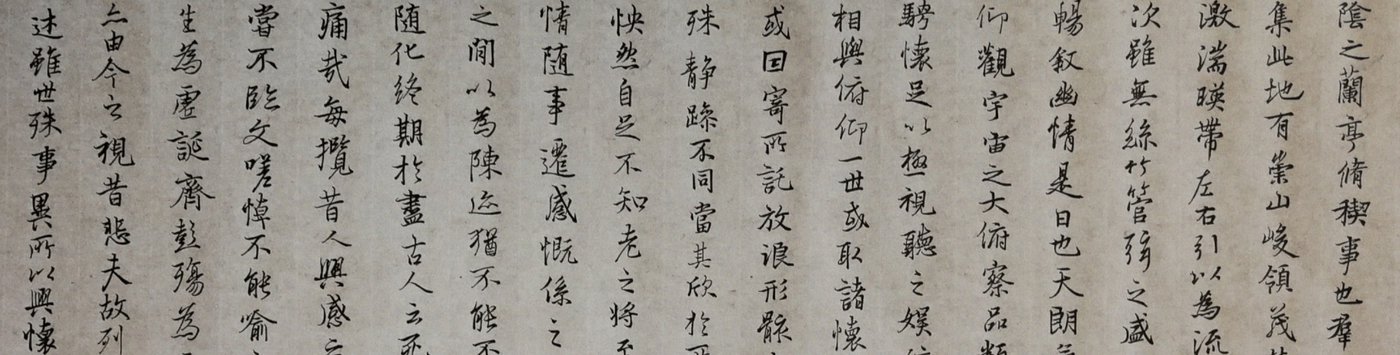 陰之蘭亭脩稧事也羣
集此地有崇山峻領茂
激湍暎帶左右引以為流
次雖無絲竹管弦之盛
暢叙幽情是日也天朗
仰觀宇宙之大俯察品類
騁懷足以極視聽之娛
相與俯仰一世或取諸懷
或因寄所託放浪形骸
殊静躁不同當其欣於
怏然自足不知老之將至
情随事遷感慨係之
之閒以為陳迹猶不能不
随化終期於盡古人云死
痛哉每攬昔人興感
甞不臨文嗟悼不能喻
生為虛誕齊彭殤為
亦由今之視昔悲夫故列
述雖世殊事異所以興懷